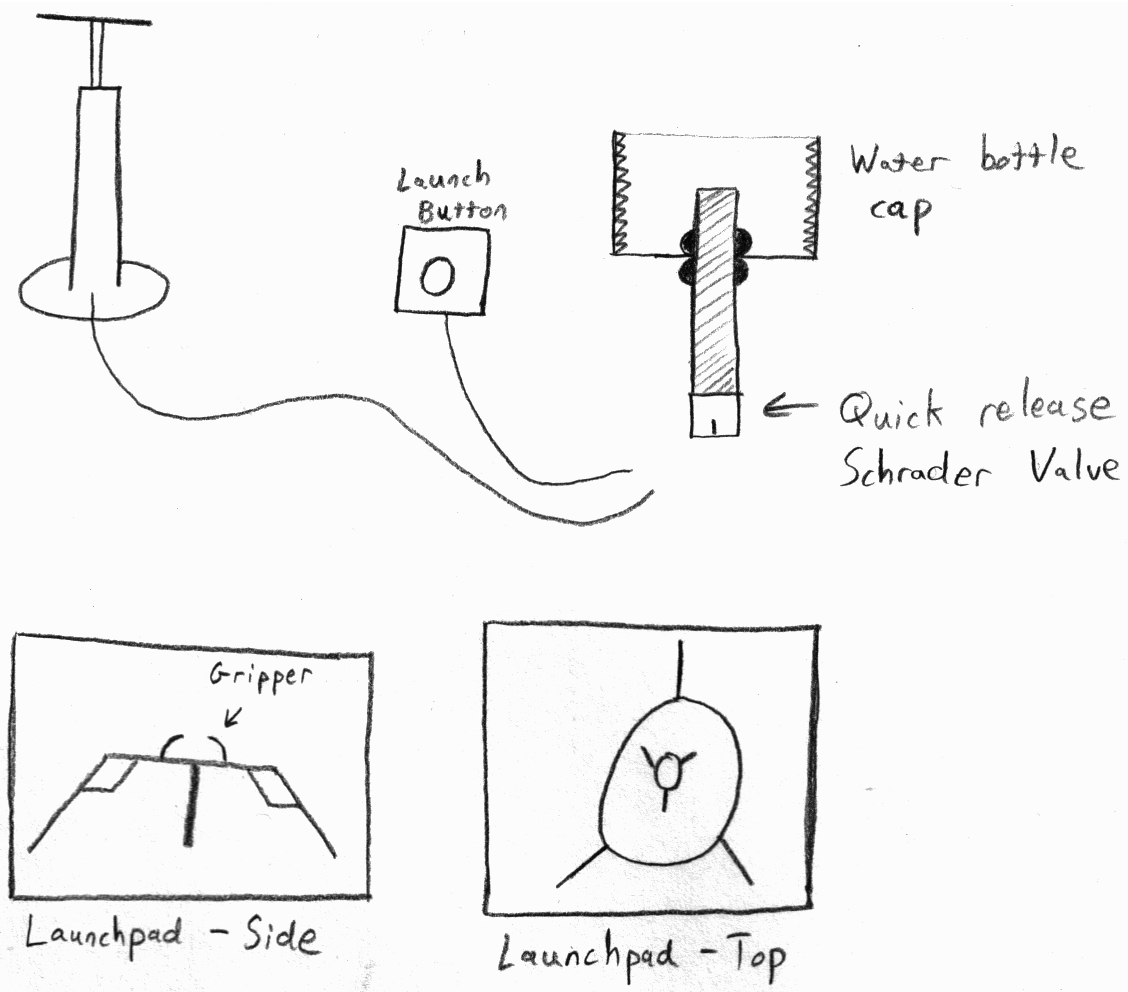 Launch
Button
Water bottle
cap
Quick release
Schrader Valve
Gripper
Launchpad - Side
Launchpad - Top